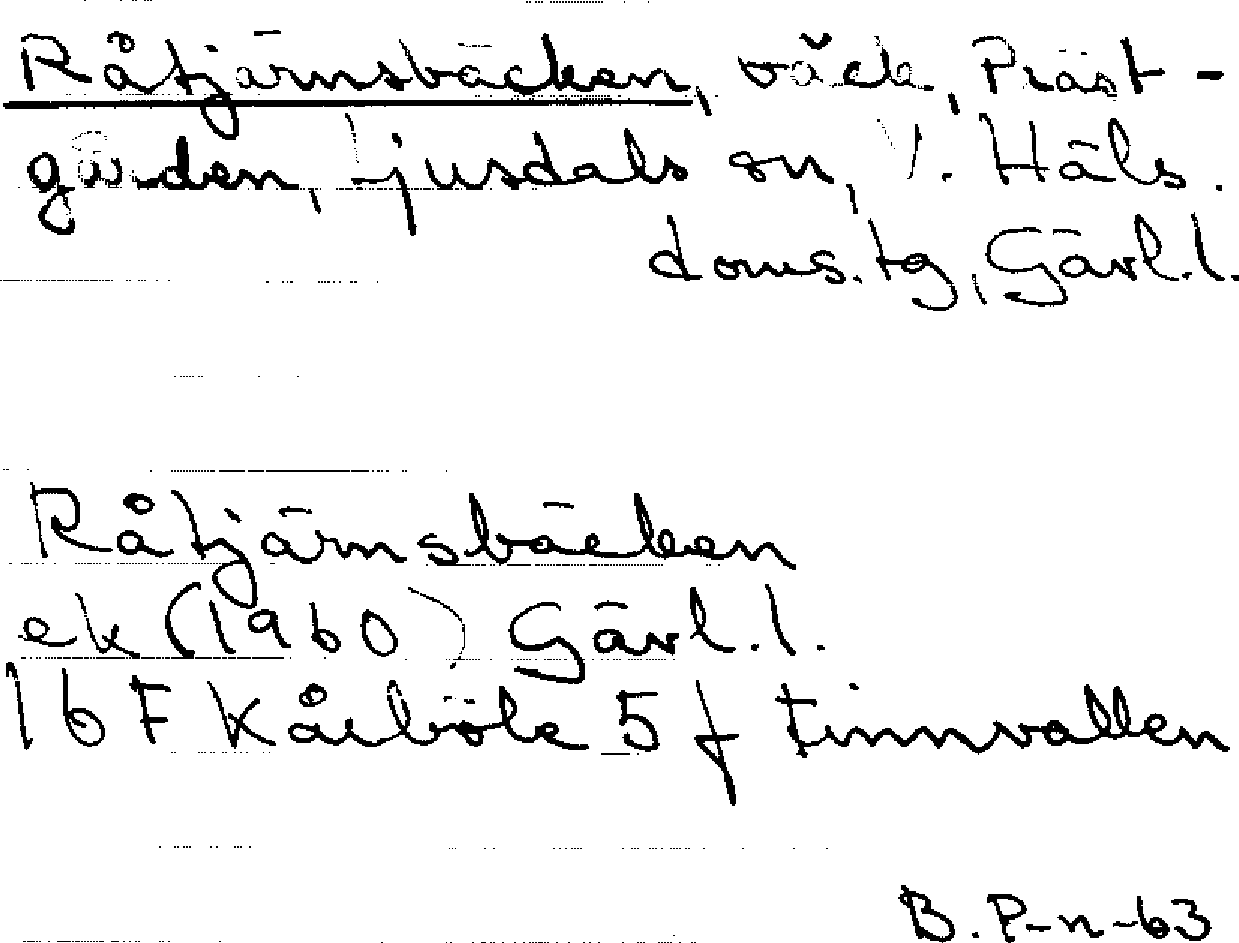 Råtjärnsbäcken, bäck, Präst-
gården, Ljusdals sn, V. Häls.
doms.tg, Gävl.l.
Råtjärnsbäcken
ek (1960) Gävl.l.
16 F Kårböle 5 f Finnvallen
B. P-n-63